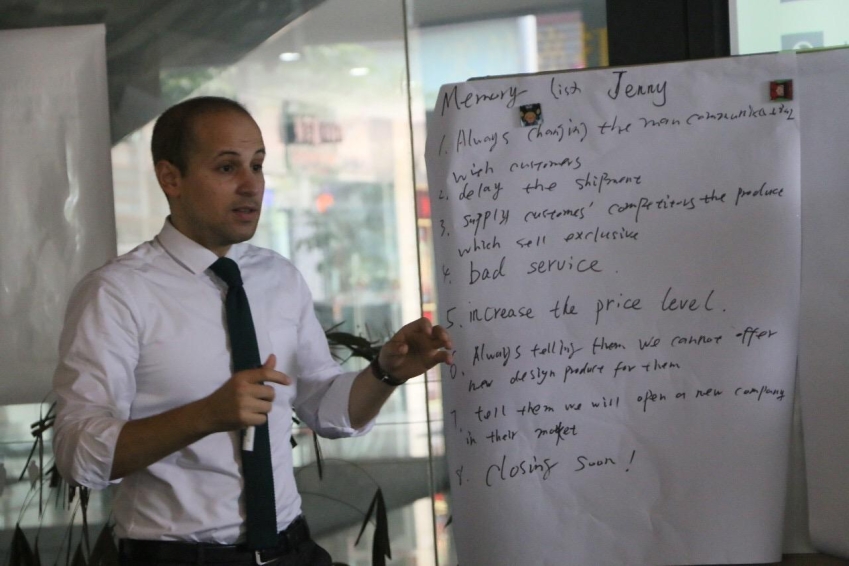 Memory list Jenny
1. Always changing the man communicating
with customers
2. delay the shipment
3. supply customers' competitors the produce
which sell exclusive
4. bad service.
5. increase the price level.
6. Always telling them we cannot offer
new design produce for them
7. tell them we will open a new company
in their market
8. closing soon!